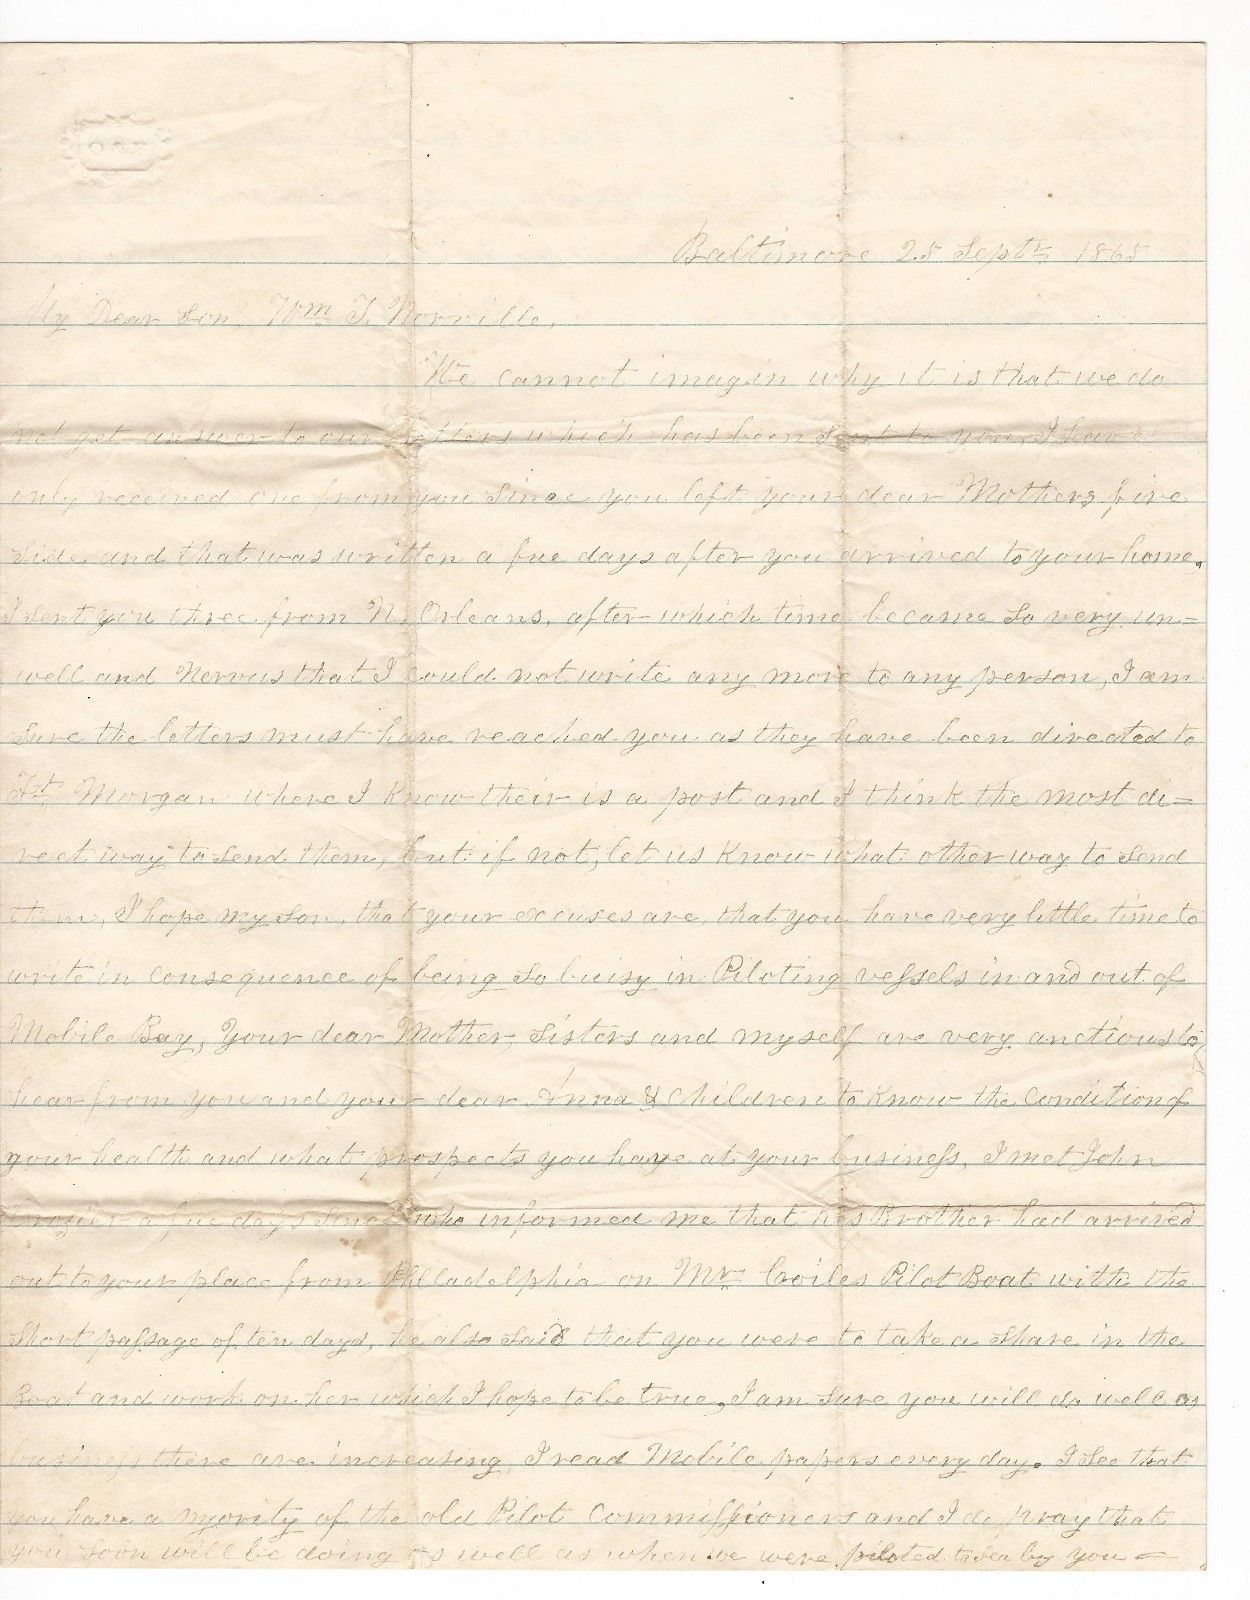 Baltimore 25 Septr 1865
My Dear Son, Wm T. Norville,
We cannot imagin why it is that we do
not get answer to our letters which has been sent to you, I have
only received one from you since you left your dear Mothers fire
side and that was written a fue days after you arrived to your home.
I sent you three from N. Orleans, after which time became so very un=
well and Nervus that I could not write any more to any person, I am
sure the letters must have reached you as they have been directed to
Ft Morgan where I know their is a post and I think the most di=
rect way to send them, but if not, let us know what other way to send
them, I hope my son, that your excuses are, that you have very little time to
write in consequence of being so buisy in Piloting vessels in and out of
Mobile Bay, Your dear Mother, Sisters and myself are very anctious to
hear from you and your dear Anna & Children to know the condition of
your health and what prospects you have at your business, I met John
a fue days since who informed me that his Brother had arrived
out to your place from Philladelphia on Mr Coiles Pilot Boat with the
short passage of ten days, he also said that you were to take a share in the
Boat and work on her which I hope to be true, I am sure you will do well as
business there are increasing, I read Mobile papers every day. I see that
you have a majority of the old Pilot Commissioners and I do pray that
you soon will be doing as well as when we were piloted to sea by you =